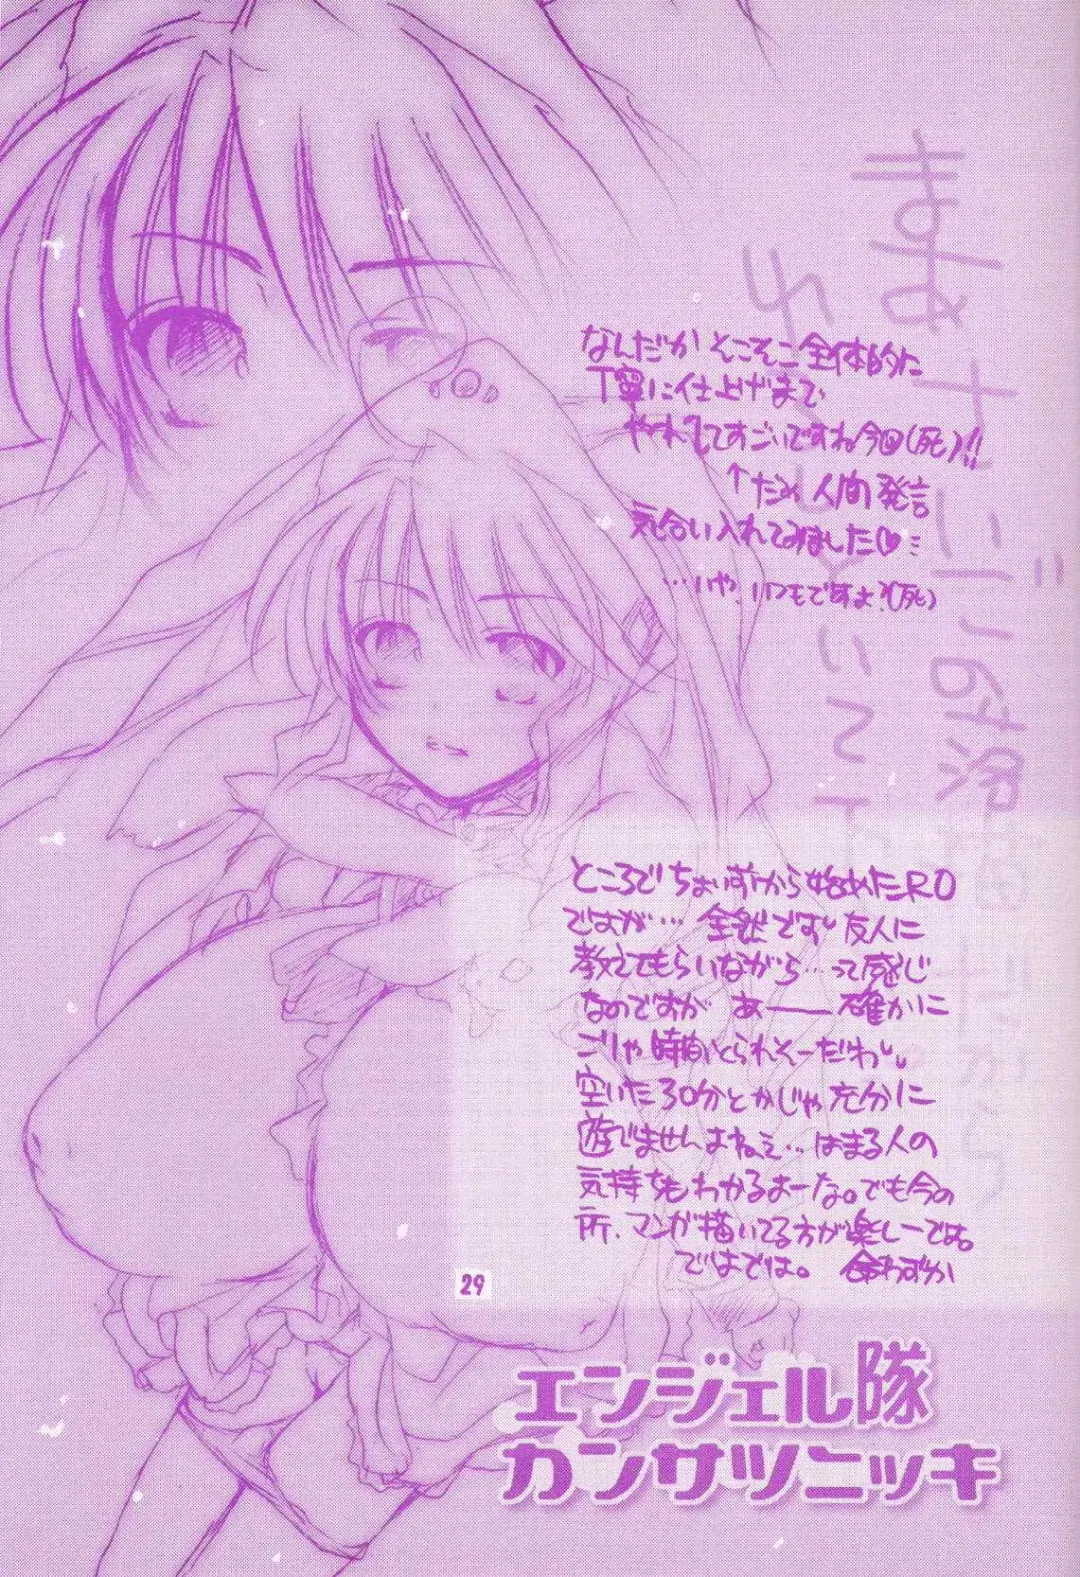 なんだか そこそこ全体的に
丁寧に仕上げまで
やれてすごいですね今回(死)!!
↑だめ人間発言
気合い入れてみました♡
…いや、いつもですよ?(死)
ところでちょい前から始めたRO
ですが… 全然です 友人に
教えてもらいながら…って感じ
なのですが あー 確かに
こりゃ時間とられそーだわ。
空いた30分とかじゃ充分に
遊べませんよねぇ…はまる人の
気持ちもわかるよーな。でも今の
所、マンガ描いてる方が楽しーでは。
ではでは。
29
エンジェル隊
カンサツニッキ